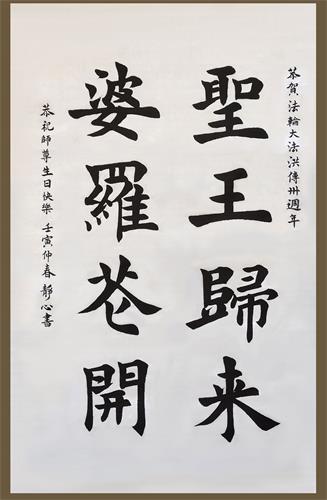 恭賀法輪大法洪傳卅週年
聖王歸来
婆羅花開
恭祝師尊生日快樂 壬寅仲春 靜心書